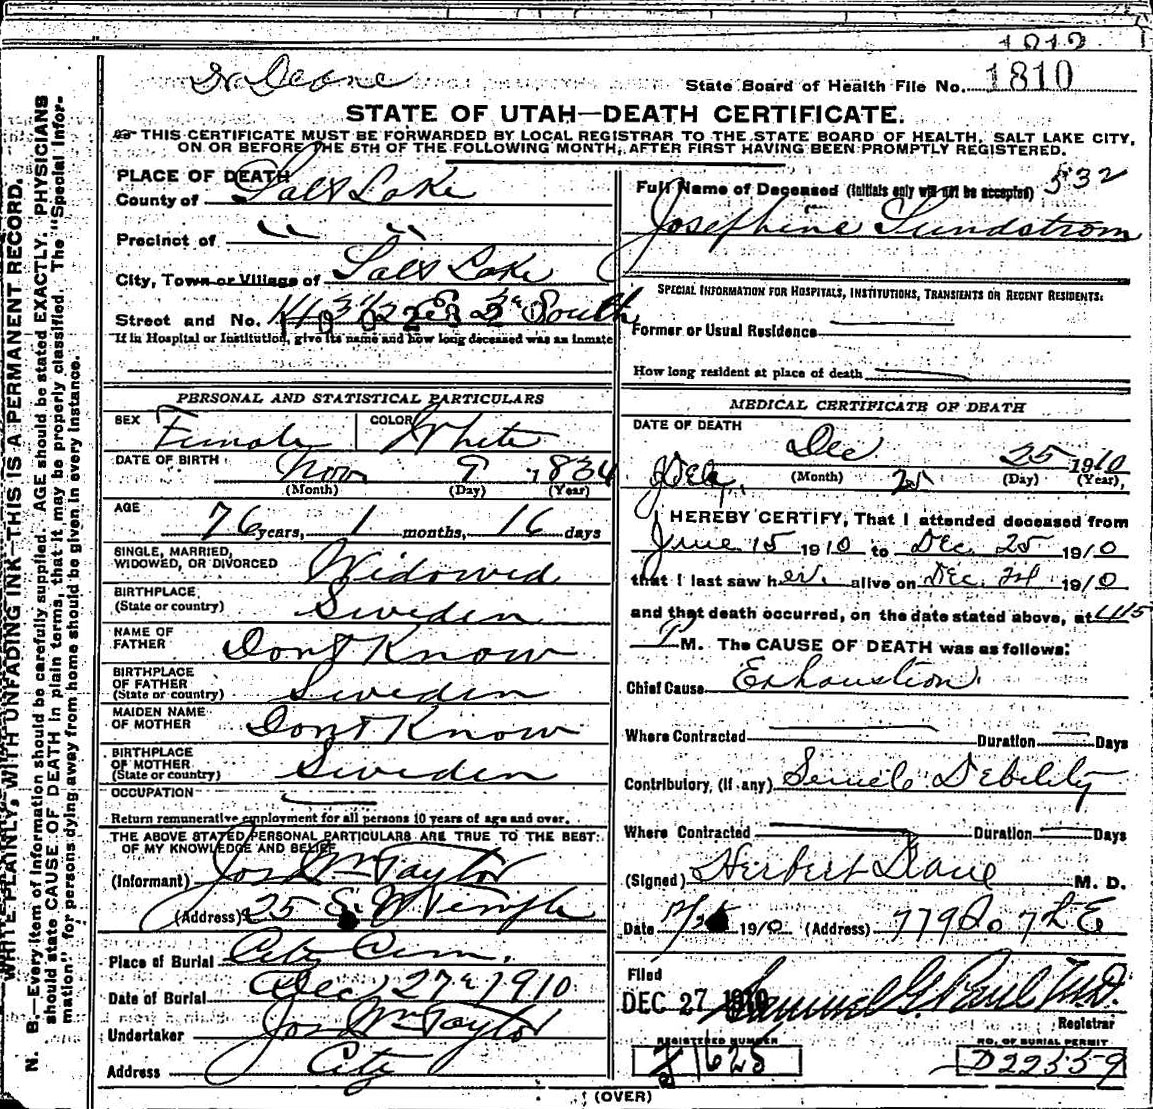 1812
Dr Deane
State Board of Health File No. 1810
STATE OF UTAH—DEATH CERTIFICATE.
THIS CERTIFICATE MUST BE FORWARDED BY LOCAL REGISTRAR TO THE STATE BOARD OF HEALTH, SALT LAKE CITY,
ON OR BEFORE THE 5TH OF THE FOLLOWING MONTH, AFTER FIRST HAVING BEEN PROMPTLY REGISTERED.
WRITE PLAINLY, WITH UNFADING INK—THIS IS A PERMANENT RECORD.
N. B.—Every item of information should be carefully supplied. AGE should be stated EXACTLY. PHYSICIANS
should state CAUSE OF DEATH in plain terms, that it may be properly classified. The "Special Infor-
mation" for persons dying away from home should be given in every instance.
PLACE OF DEATH
County of Salt Lake
Precinct of " "
City, Town or Village of Salt Lake
Street and No. South
If in Hospital or Institution, give its name and how long deceased was an inmate
PERSONAL AND STATISTICAL PARTICULARS
SEX Female COLOR White
DATE OF BIRTH Nov 9 1834
(Month) (Day) (Year)
AGE 76 years, 1 months, 16 days
SINGLE, MARRIED,
WIDOWED, OR DIVORCED Widowed
BIRTHPLACE
(State or country) Sweden
NAME OF
FATHER Dont Know
BIRTHPLACE
OF FATHER
(State or country) Sweden
MAIDEN NAME
OF MOTHER Dont Know
BIRTHPLACE
OF MOTHER
(State or country) Sweden
OCCUPATION
Return remunerative employment for all persons 10 years of age and over.
THE ABOVE STATED PERSONAL PARTICULARS ARE TRUE TO THE BEST
OF MY KNOWLEDGE AND BELIEF
(Informant) Jos Wm Taylor
(Address) 25 Temple
Place of Burial City Cem.
Date of Burial Dec 27th 1910
Undertaker Jos Wm Taylor
Address City
Full Name of Deceased (Initials only will not be accepted) 532
Josephine Sundstrom
SPECIAL INFORMATION FOR HOSPITALS, INSTITUTIONS, TRANSIENTS OR RECENT RESIDENTS:
Former or Usual Residence
How long resident at place of death
MEDICAL CERTIFICATE OF DEATH
DATE OF DEATH
Dec 25 1910
(Month) 25 (Day) (Year),
I HEREBY CERTIFY, That I attended deceased from
June 15 1910 to Dec. 25 1910
that I last saw her alive on Dec. 24 1910
and that death occurred, on the date stated above, at 445
P M. The CAUSE OF DEATH was as follows:
Chief Cause Exhaustion
Where Contracted Duration Days
Contributory, (if any) Senile Debility
Where Contracted Duration Days
(Signed) Herbert Deane M. D.
Date 1910 (Address) 779 So 7th E
Filed
DEC 27 1910 Samuel G. Paul M.D.
Registrar
REGISTERED NUMBER NO. OF BURIAL PERMIT
1625 D22359
(OVER)